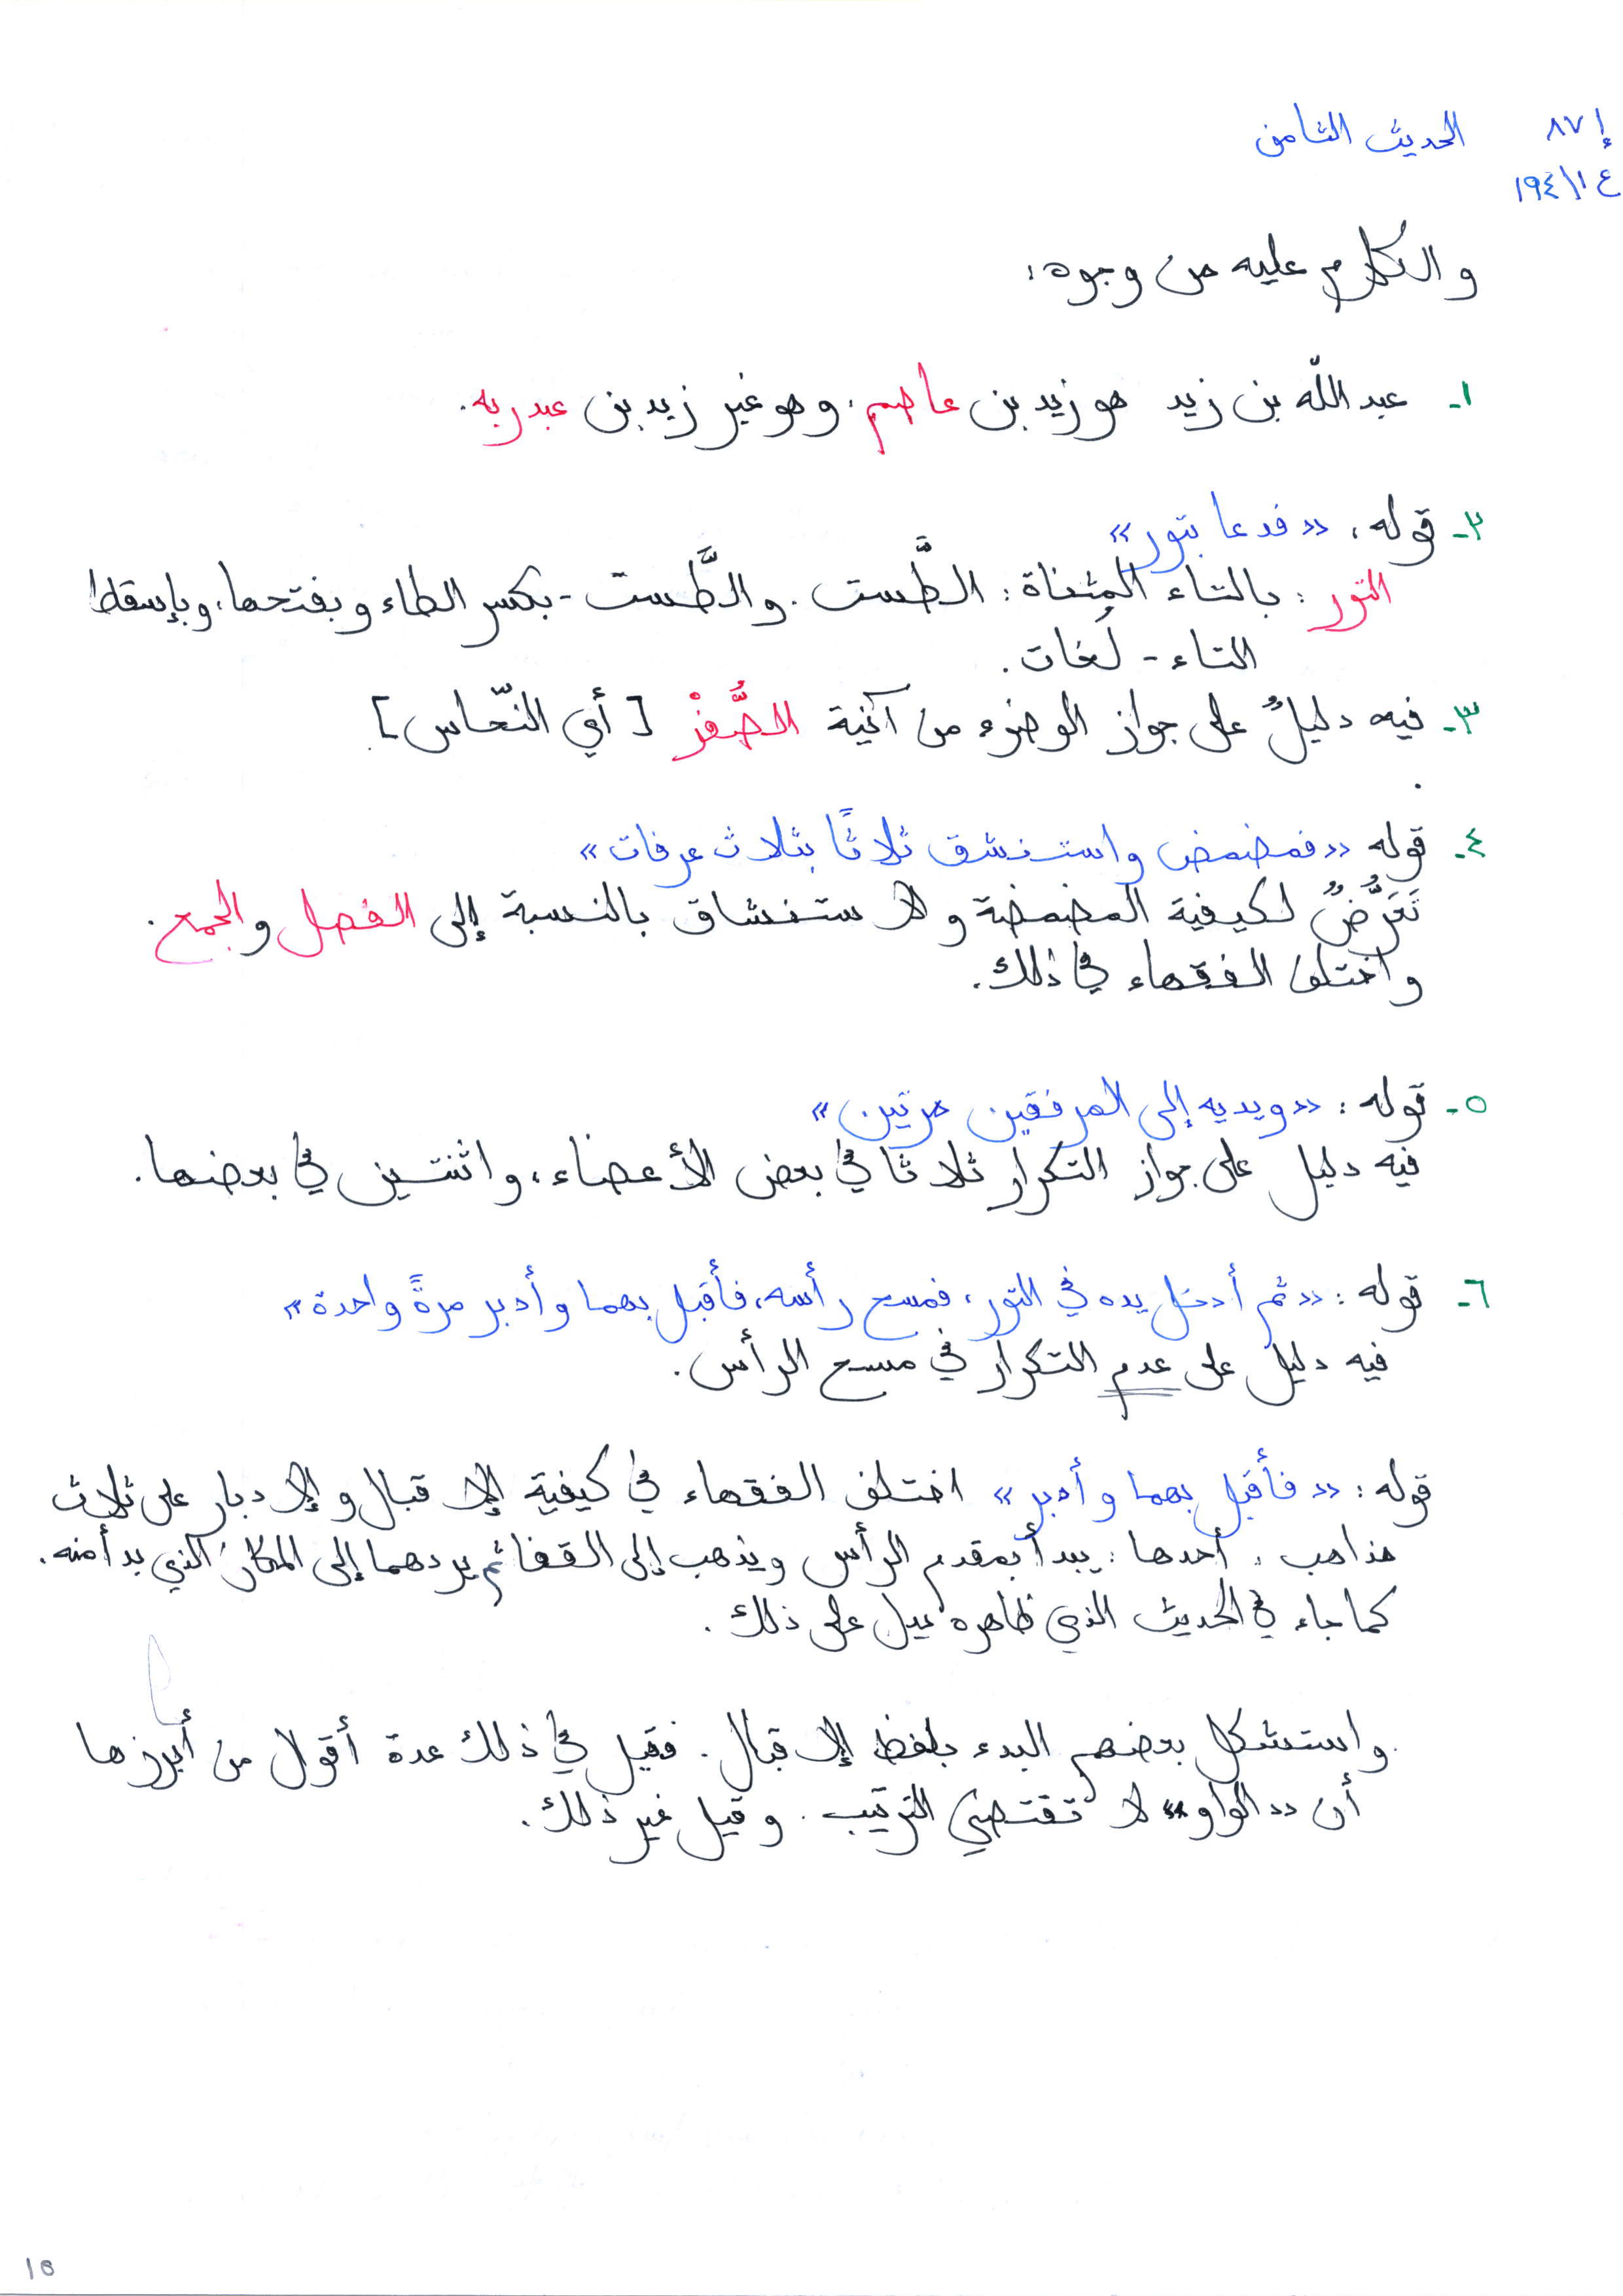 إ ٨٧ الحديث الثامن
ع ١\١٩٤
والكلام عليه من وجوه:
١- عبد اللّه بن زيد هو زيد بن عاصم، وهو غير زيد بن عبد ربه.
٢- قوله: «فدعا بتور»
التور: بالتاء المثناة: الطَّست. والطَّست - بكسر الطاء وبفتحها، وبإسقاط
التاء - لغات.
٣- فيه دليلٌ على جواز الوضوء من آنية الصُّفْر [أي النحّاس]
٤- قوله «فمضمض واستنشق ثلاثًا بثلاث غرفات»
تَعَرُّضٌ لكيفية المضمضة والاستنشاق بالنسبة إلى الفصل والجمع.
واختلف الفقهاء في ذلك.
٥- قوله: «ويديه إلى المرفقين مرتين»
فيه دليل على جواز التكرار ثلاثا في بعض الأعضاء، واثنتين في بعضها.
٦- قوله: «ثم أدخل يده في التور، فمسح رأسه، فأقبل بهما وأدبر مرةً واحدة»
فيه دليل على عدم التكرار في مسح الرأس.
قوله: «فأقبل بهما وأدبر» اختلف الفقهاء في كيفية الإقبال والإدبار على ثلاث
مذاهب. أحدها: يبدأ بمقدم الرأس ويذهب إلى القفا ثم يردهما إلى المكان الذي بدأ منه.
كما جاء في الحديث الذي ظاهره يدل على ذلك.
واستشكل بعضهم البدء بلفظ الإقبال. فقيل في ذلك عدة أقوال من أبرزها
أن «الواو» لا تقتضي الترتيب. وقيل غير ذلك.
١٥